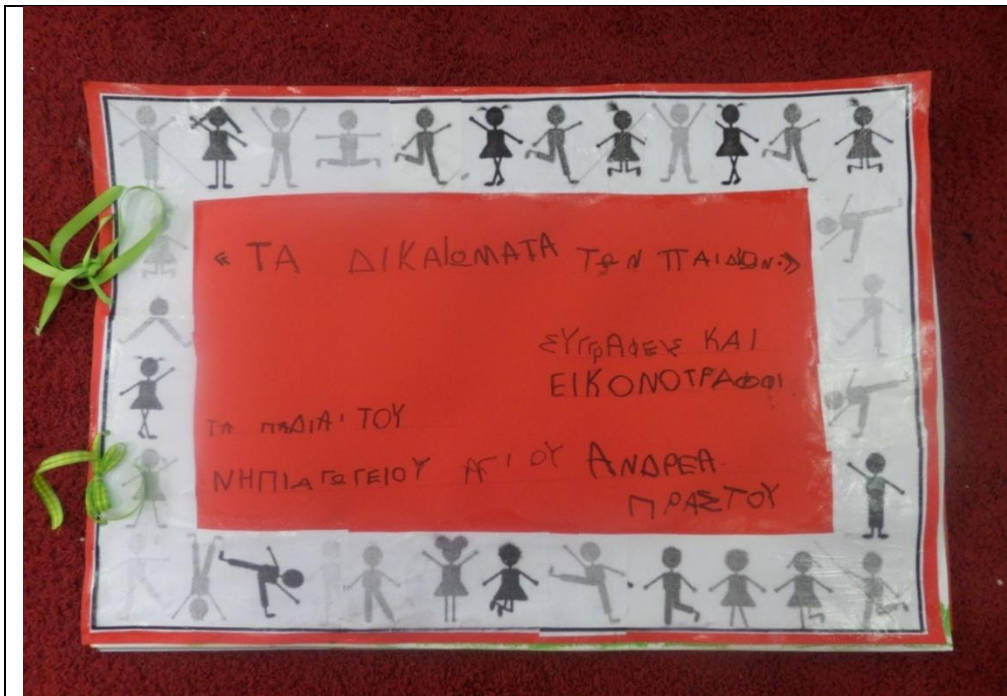 « ΤΑ ΔΙΚΑΙΩΜΑΤΑ ΤΩΝ ΠΑΙΔΙΩΝ.»
ΣΥΓΓΡΑΦΕΙΣ ΚΑΙ
ΕΙΚΟΝΟΓΡΑΦΟΙ
ΤΑ ΠΑΔΙΑ ΤΟΥ
ΝΗΠΙΑΓΩΓΕΙΟΥ ΑΓΙΟΥ ΑΝΔΡΕΑ
ΠΡΑΣΤΟΥ